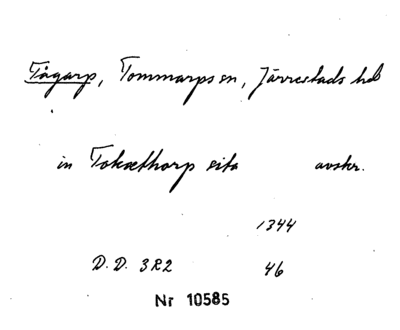 Tågarp, Tommarps sn, Järrestads hd
in Tokæthorp sita avskr.
1344
D.D. 3R2 46
Nr 10585